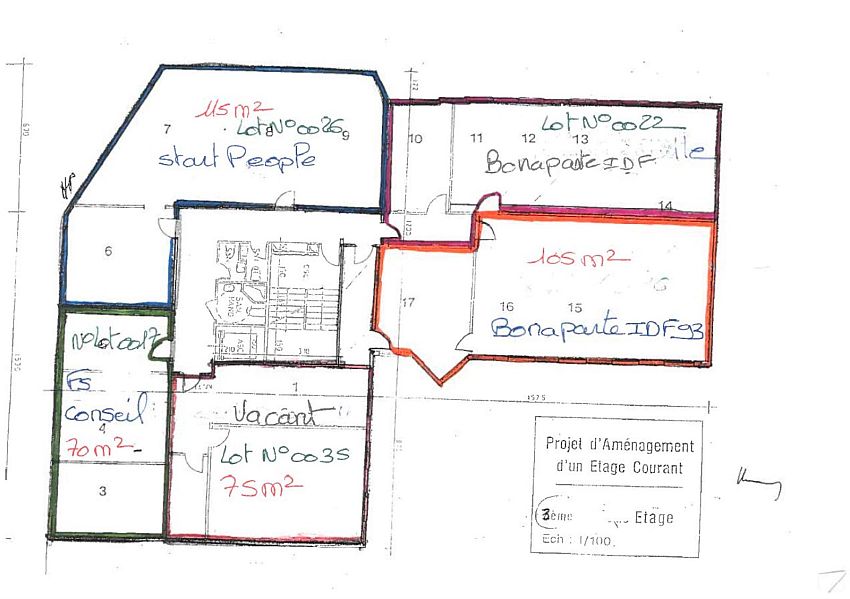 115 m2
7
Lot N°0026
8
9
Start People
6
10
11
12
13
Lot N°0022
Bonaparte IDF
14
105 m2
17
16
15
Bonaparte IDF 93
N°Lot 0017
FS
Conseil
4
70 m2
3
1
Vacant
Lot N°0035
75 m2
1575
Projet d'Aménagement
d'un Etage Courant
3ème Etage
Ech : 1/100